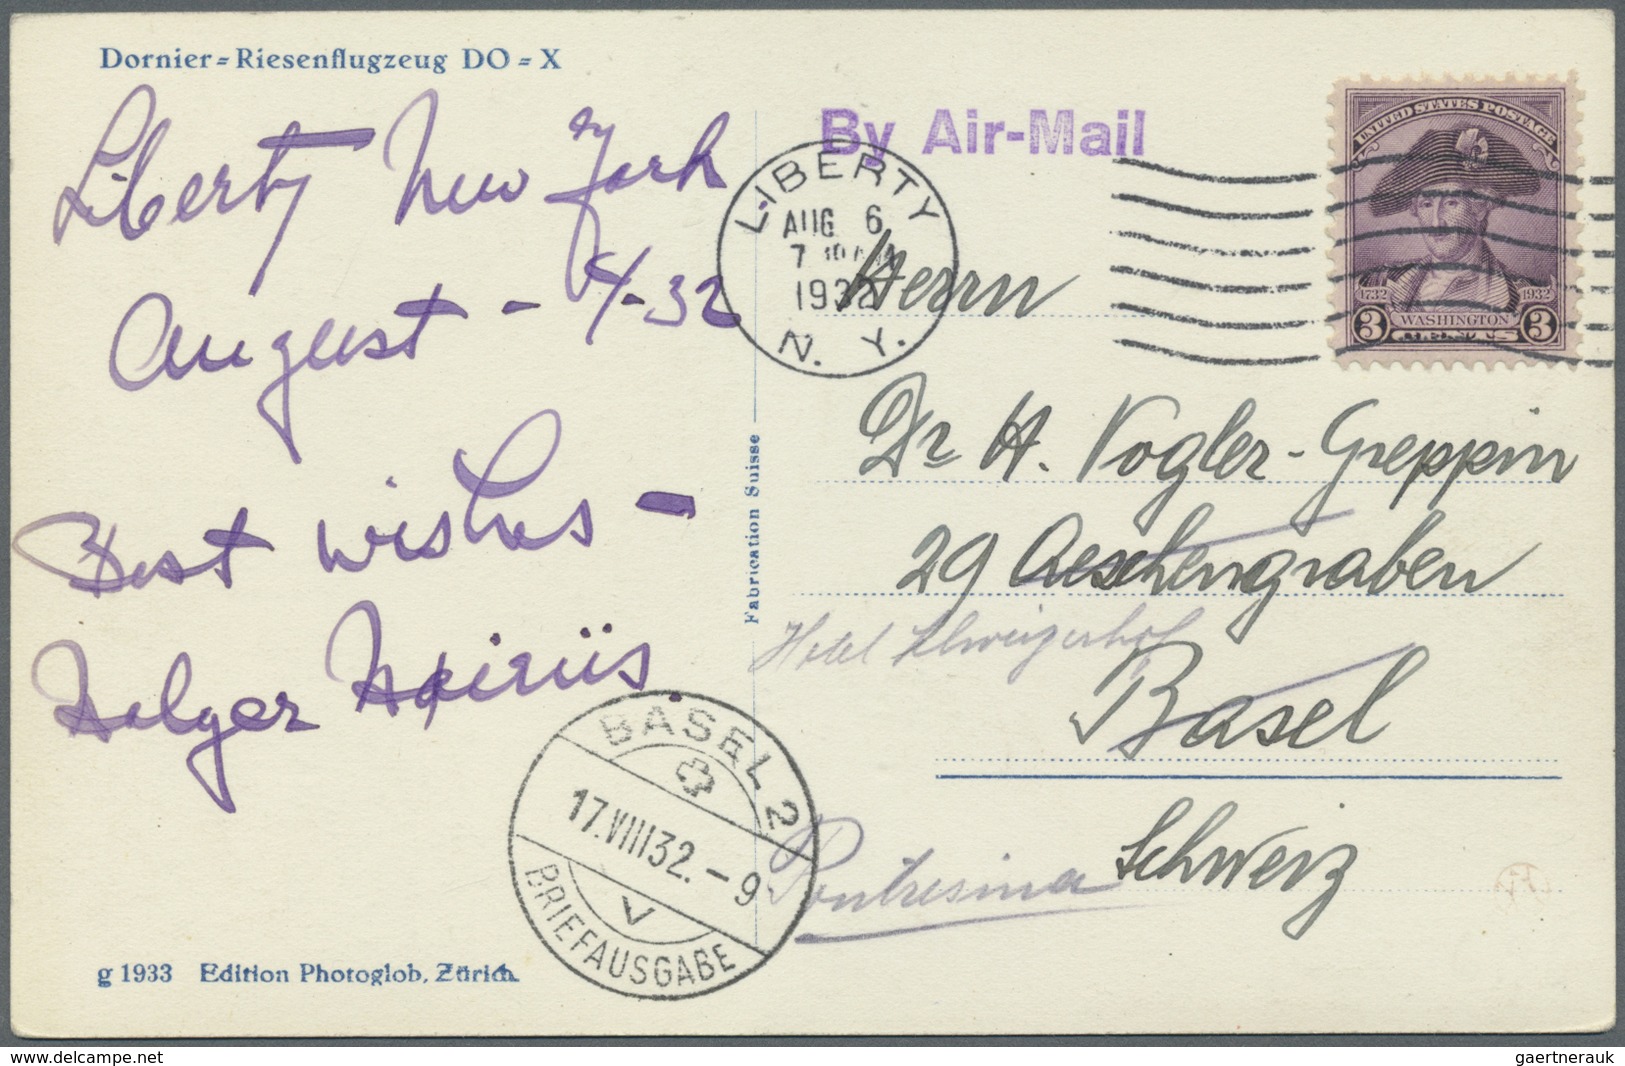 Dornier=Riesenflugzeug DO=X
Liberty New York
August - 4-32
Best wishes -
Holger Hoiriis.
By Air-Mail
LIBERTY
AUG 6
7
1932
N. Y.
UNITED STATES POSTAGE
1732 1932
3 WASHINGTON 3
Herrn
Dr H. Vogler-Greppin
29 Aeschengraben
Hotel Schweizerhof
Basel
Schweiz
Pontresina
Fabrication Suisse
BASEL 2
17.VIII32.-9
V
BRIEFAUSGABE
g 1933 Edition Photoglob, Zürich.
www.delcampe.net
gaertnerauk